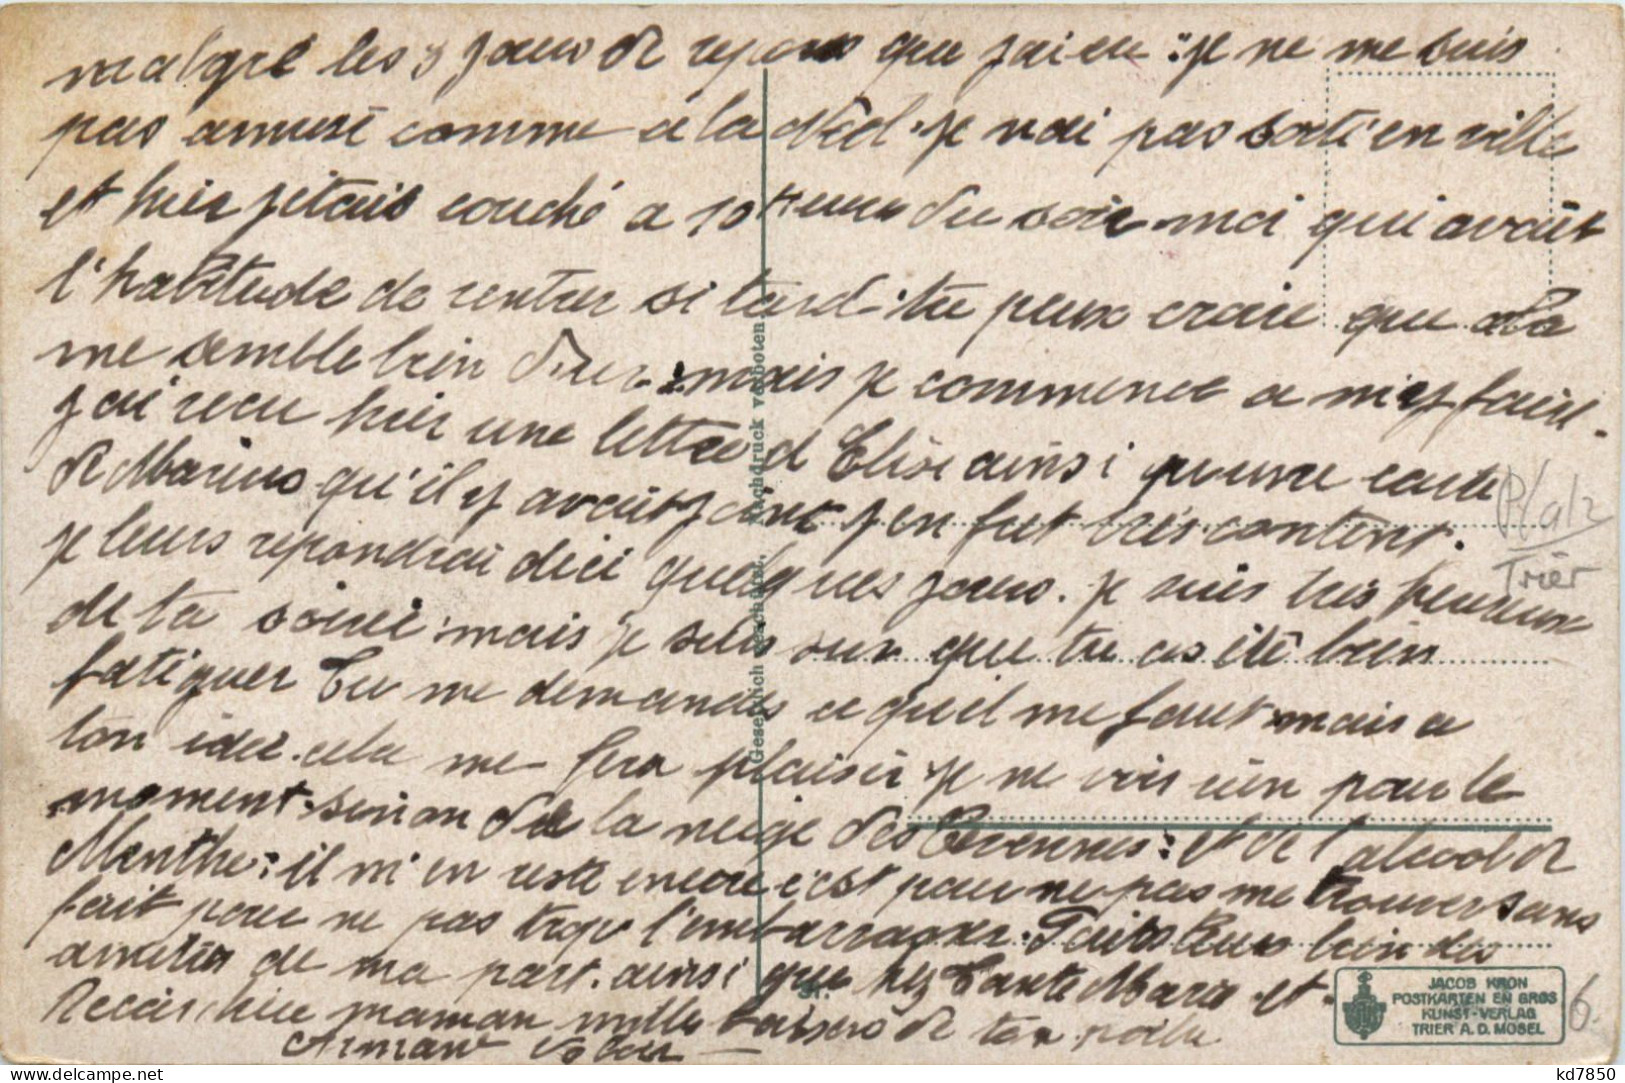 malgré les 3 jours de repos que jai eu : je ne me suis
pas amusé comme à la Noël. je n'ai pas sorti en ville
et hier j'étais couché a 10 Heures du soir. moi qui avait
l'habitude de rentrer si tard. tu peux croire que cela
me semble bien dur : mais je commence a m'y faire.
j'ai recu hier une lettre d Elise ainsi qu'une carte
de Marius qu'il y avait joint j'en fut très content.
je leurs repondrai dici quelques jours. je suis très heureux
de ta soirée. mais je suis sur que tu as été bien
fatiguer Tu me demandes ce qu'il me faut mais a
ton idée. cela me fera plaisir je ne vois rien pour le
moment. sinon de la neige des Cevennes : et de l'alcool de
Menthe : il m'en reste encore c'est pour ne pas me trouver sans
fait pour ne pas trop l'embarrasser. Faits leurs bien des
amitiés de ma part. ainsi que chez Tante Maria et
Recois chère maman mille baisers de ton poilu.
Armand
P/9/2
Trier
6.
Gesetzlich geschützt. Nachdruck verboten.
JACOB KRON
POSTKARTEN EN GROS
KUNST-VERLAG
TRIER A. D. MOSEL
kd7850